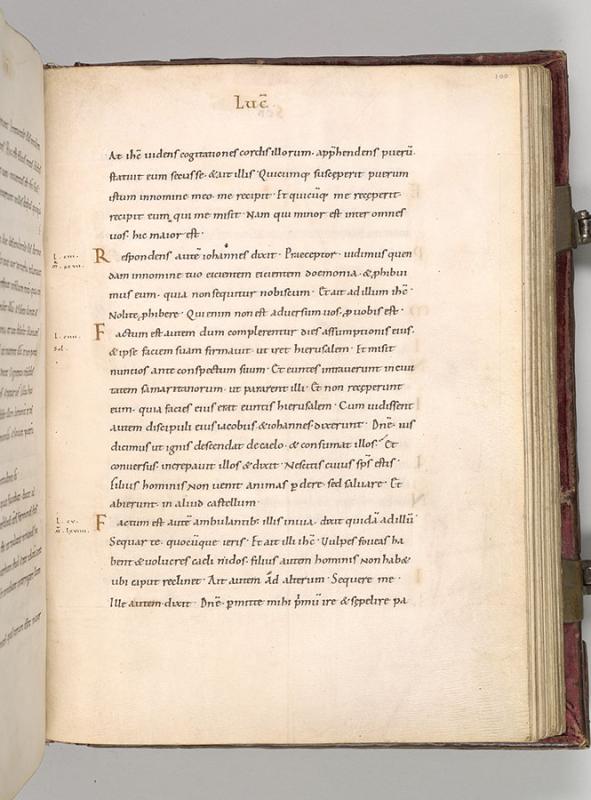 100
Luc̄
At ihc̄ uidens cogitationes cordis illorum· app̄hendens puerū·
statuit eum secus se· & ait illis· Quicumq; susceperit puerum
istum in nomine meo· me recipit· Et quicūq; me receperit·
recipit eum qui me misit· Nam qui minor est inter omnes
uos· hic maior est·
Respondens autē iohannes dixit· Praeceptor· uidimus quen
dam in nomine tuo eicientem daemonia· & phibui
mus eum· quia non sequitur nobiscum· Et ait ad illum ihc̄·
Nolite phibere· Qui enim non est aduersum uos· p uobis est·
Factum est autem dum complerentur dies assumptionis eius·
& ipse faciem suam firmauit ut iret hierusalem· Et misit
nuntios ante conspectum suum· Et euntes intrauerunt in ciui
tatem samaritanorum· ut pararent illi· Et non receperunt
eum· quia facies eius erat euntis hierusalem· Cum uidissent
autem discipuli eius iacobus & iohannes dixerunt· Dn̄e· uis
dicimus ut ignis descendat de caelo· & consumat illos· Et
conuersus increpauit illos & dixit· Nescitis cuius sps̄ estis·
filius hominis non uenit animas pdere· sed saluare· Et
abierunt in aliud castellum·
Factum est autē ambulantib; illis in uia· dixit quidā ad illū·
Sequar te· quocūque ieris· Et ait illi ihc̄· Uulpes foueas ha
bent & uolucres caeli nidos· filius autem hominis non hab&
ubi caput reclinet· Ait autem ad alterum· Sequere me·
Ille autem dixit· Dn̄e· pmitte mihi pmū ire & sepelire pa